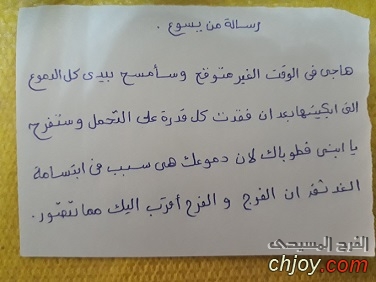 رسالة من يسوع .
هاجى فى الوقت الغير متوقع وسأمسح بيدى كل الدموع
التى ابكيتها بعد ان فقدت كل قدرة على التحمل وستفرح
يا ابنى فطوباك لان دموعك هى سبب فى ابتسامة
الغد ثق ان الفرج و الفرح أقرب اليك مما تتصور .
الفرح المسيحى
chjoy.com